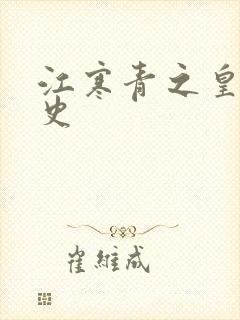 江寒青之皇
史
崔維成